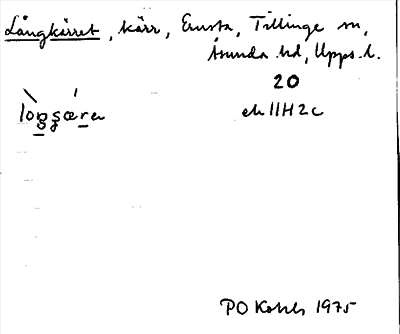 Långkärret, kärr, Ensta, Tillinge sn,
Åsunda hd, Upps. l.
20
ek 11H2c
PO Kohls 1975